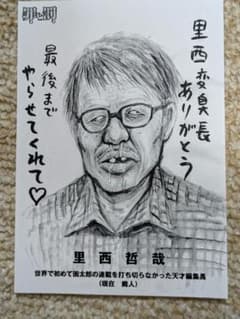 里西変臭長
ありがとう
最後まで
やらせてくれて♡
里西哲哉
世界で初めて画太郎の連載を打ち切らなかった天才編集長
（現在　廃人）